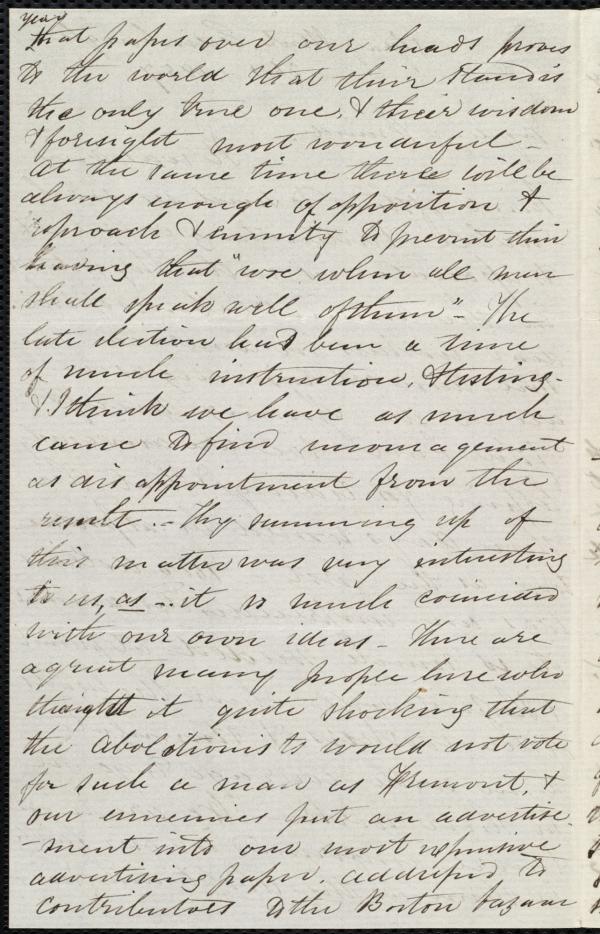 year
that passes over our heads proves
to the world that their stand is
the only true one, & their wisdom
& foresight most wonderful -
At the same time there will be
always enough of opposition &
reproach & enmity to prevent their
having that "woe when all men
shall speak well of them" - The
late election had been a time
of much instruction, & testing -
& I think we have as much
cause to find encouragement
as disappointment from the
result . - Thy summing up of
this matter was very interesting
to us, as - it so much coincided
with our own ideas - There are
a great many people here who
thought it quite shocking that
the abolitionists would not vote
for such a man as Fremont, &
our ennemies put an advertise-
-ment into our most expensive
advertising paper, addressed to
contributors to the Boston bazaar